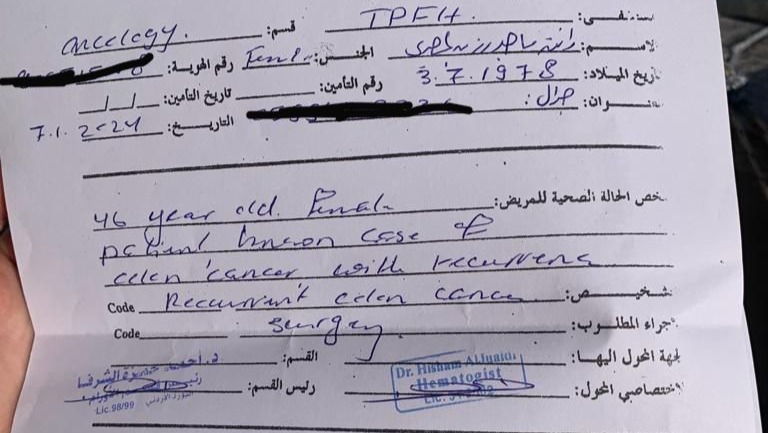 مستشفى: TPFH. قسم: oncology.
الاسم: الجنس: Female رقم الهوية:
تاريخ الميلاد: 3.7.1978 رقم التأمين: تاريخ التأمين: / /
عنوان: جوال: التاريخ: 7.1.2024
خص الحالة الصحية للمريض: 46 year old. Female
patient known case of
colon cancer with recurrens
شخيص: Recurrent colon cancer Code
جراء المطلوب: surgery Code
جهة المحول اليها: القسم:
اختصاصي المحول: رئيس القسم:
Dr. Hisham AlJuaidi
Hematogist
Lic. 98/99